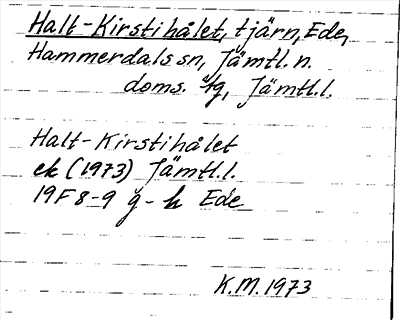 Halt-Kirstihålet, tjärn, Ede,
Hammerdals sn, Jämtl. n.
doms. tg, Jämtl.l.
Halt-Kirstihålet
ek (1973) Jämtl.l.
19F 8-9 g-h Ede
K.M. 1973